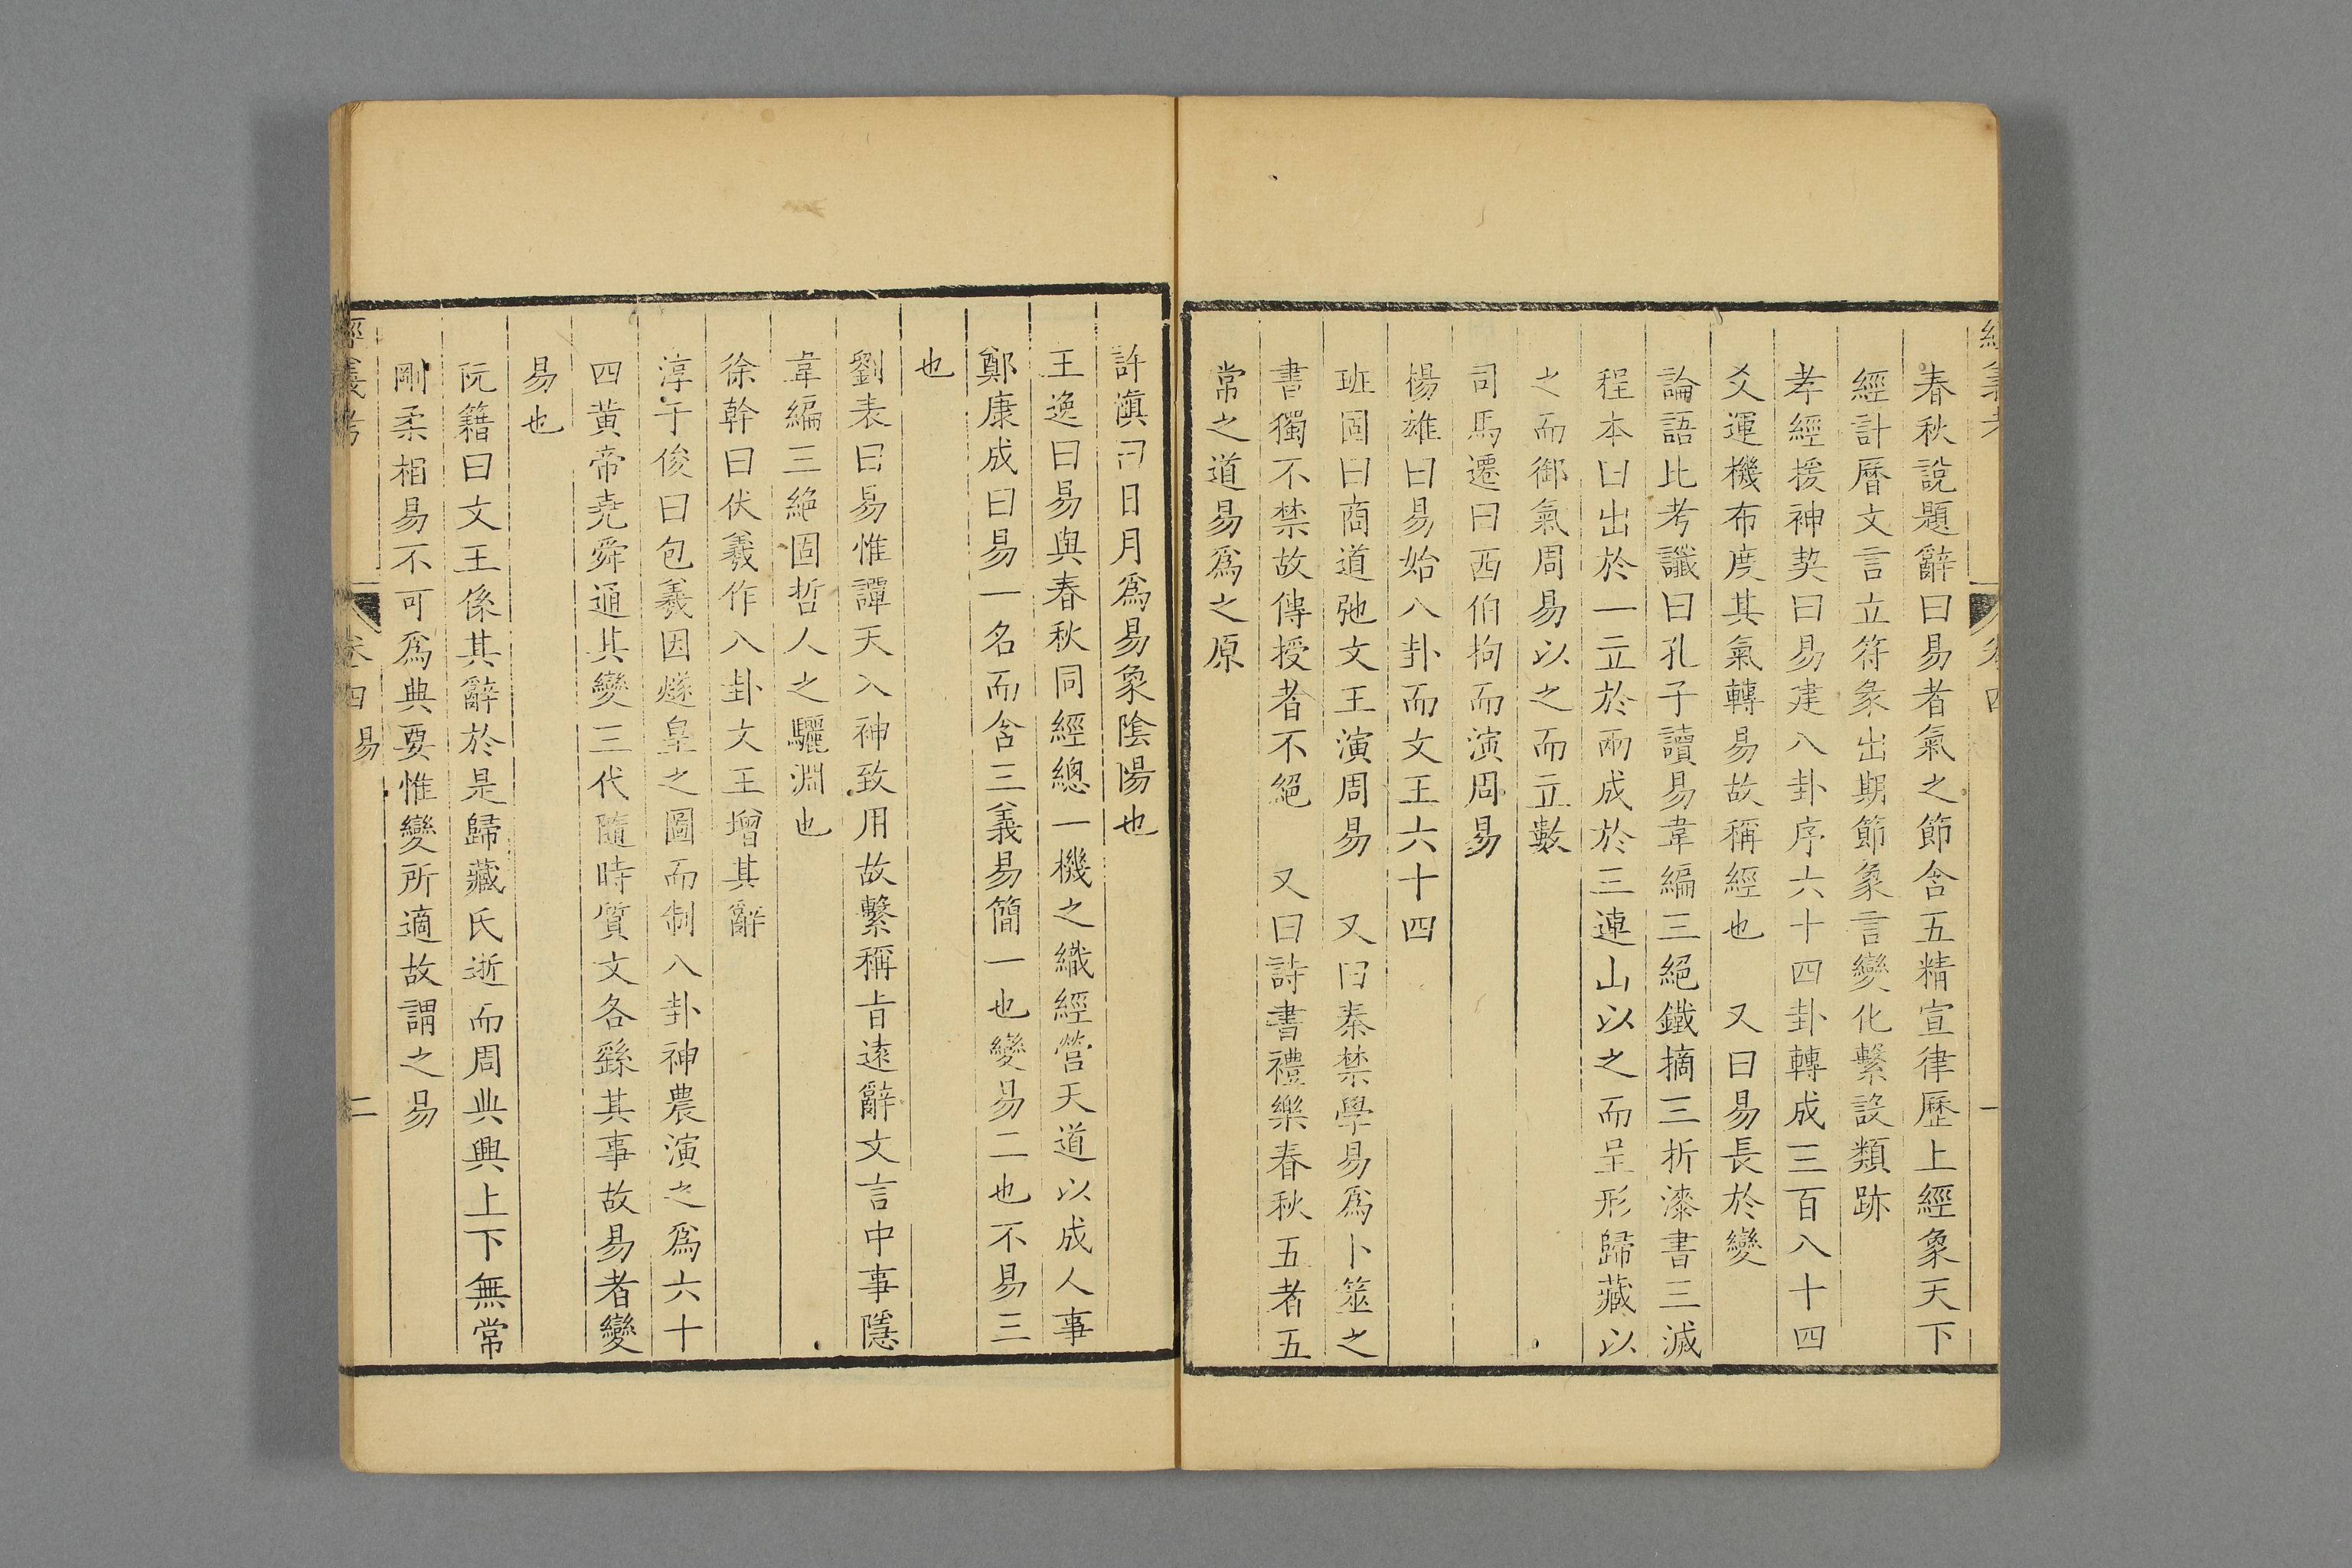 春秋說題辭曰易者氣之節含五精宣律歷上經象天下
經計曆文言立符彖出期節象言變化繫設類跡
孝經援神契曰易建八卦序六十四卦轉成三百八十四
爻運機布度其氣轉易故稱經也 又曰易長於變
論語比考讖曰孔子讀易韋編三絕鐵摘三折漆書三滅
程本曰出於一立於兩成於三連山以之而呈形歸藏以
之而御氣周易以之而立數
司馬遷曰西伯拘而演周易
楊雄曰易始八卦而文王六十四
班固曰商道弛文王演周易 又曰秦禁學易爲卜筮之
書獨不禁故傳授者不絕 又曰詩書禮樂春秋五者五
常之道易爲之原
許滇曰日月爲易象陰陽也
王逸曰易與春秋同經總一機之織經營天道以成人事
鄭康成曰易一名而含三義易簡一也變易二也不易三
也
劉表曰易惟譚天入神致用故繫稱旨遠辭文言中事隱
韋編三絕固哲人之驪淵也
徐幹曰伏羲作八卦文王增其辭
淳于俊曰包羲因燧皇之圖而制八卦神農演之爲六十
四黃帝堯舜通其變三代隨時質文各繇其事故易者變
易也
阮籍曰文王係其辭於是歸藏氏逝而周典興上下無常
剛柔相易不可爲典要惟變所適故謂之易
經義考 卷四 易 二